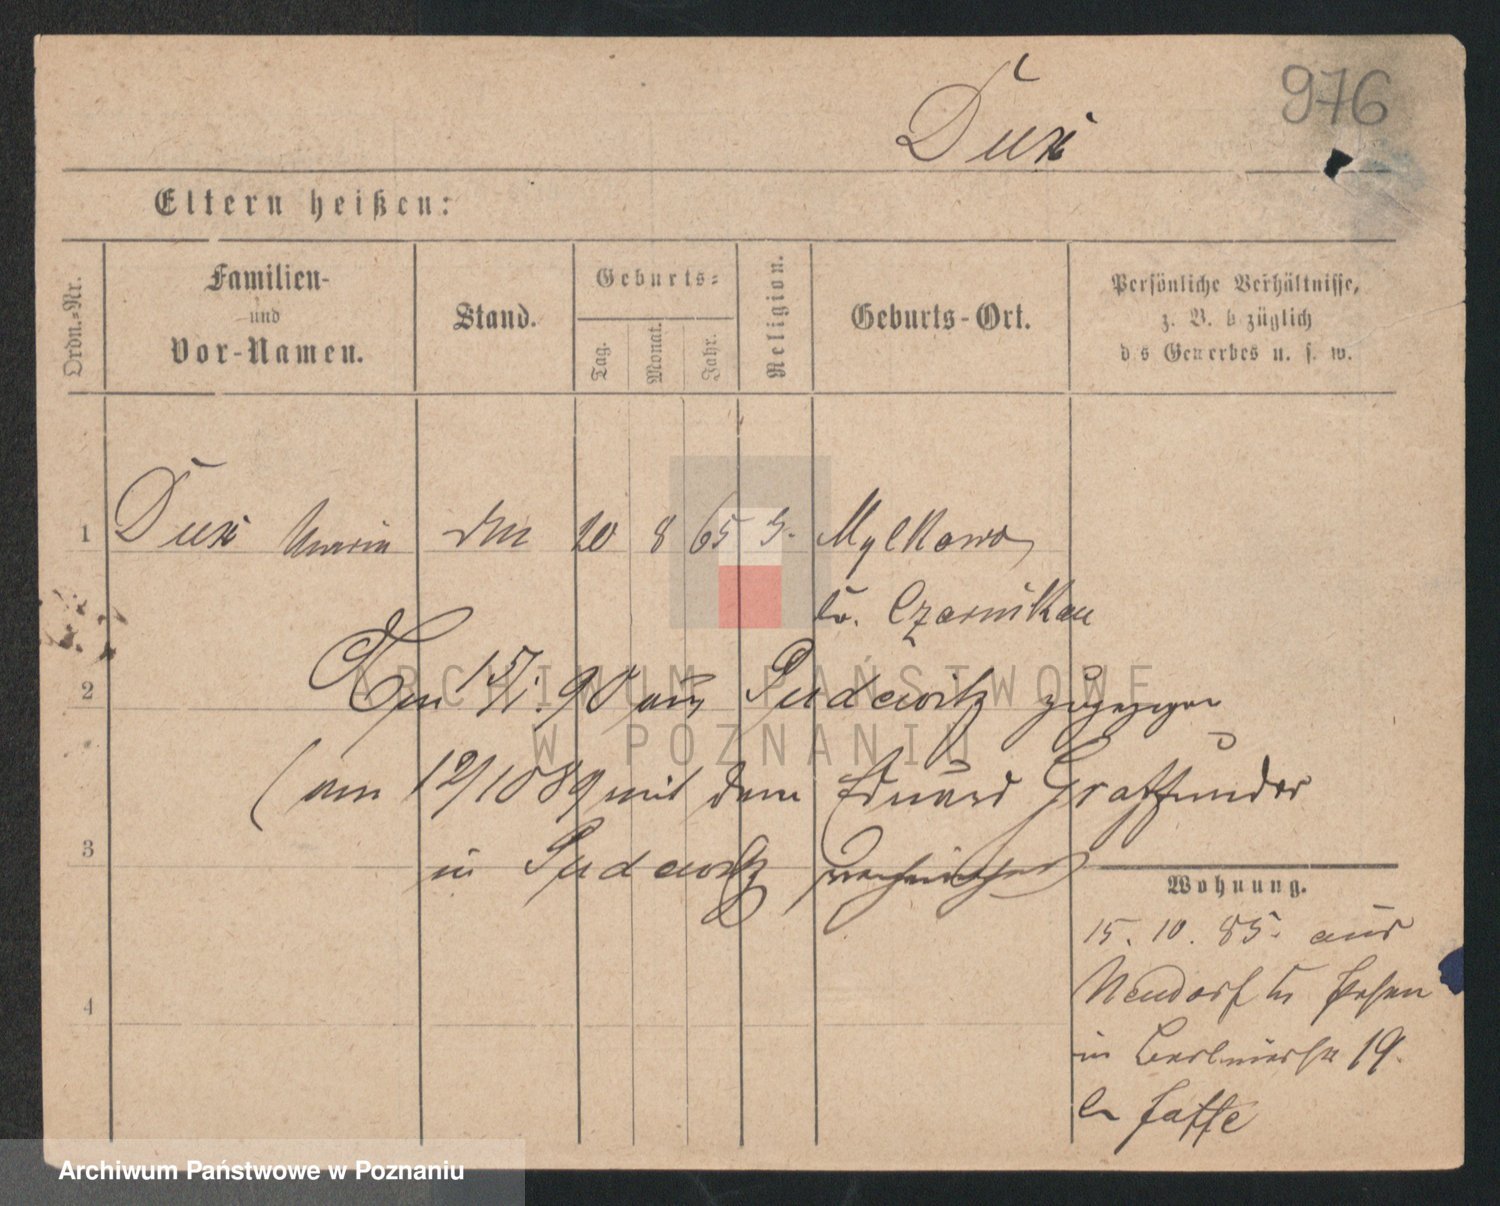 976
Dux
Eltern heißen:
Ordn.-Nr.
Familien-
und
Vor-Namen.
Stand.
Geburts-
Tag.
Monat.
Jahr.
Religion.
Geburts-Ort.
Persönliche Verhältnisse,
z. B. b züglich
d s Gewerbes u. s. w.
1 Dux Maria 20 8 65 Mylkowo
Czarnikau
2 Am 15/1. 90 aus Pudewitz zugezogen
(am 12/10 89 mit dem Eduard Graffunder
3 in Pudewitz
Wohnung.
15. 10. 85. aus
Neudorf
in Berlinerstr 19.
4
ARCHIWUM PAŃSTWOWE
W POZNANIU
Archiwum Państwowe w Poznaniu